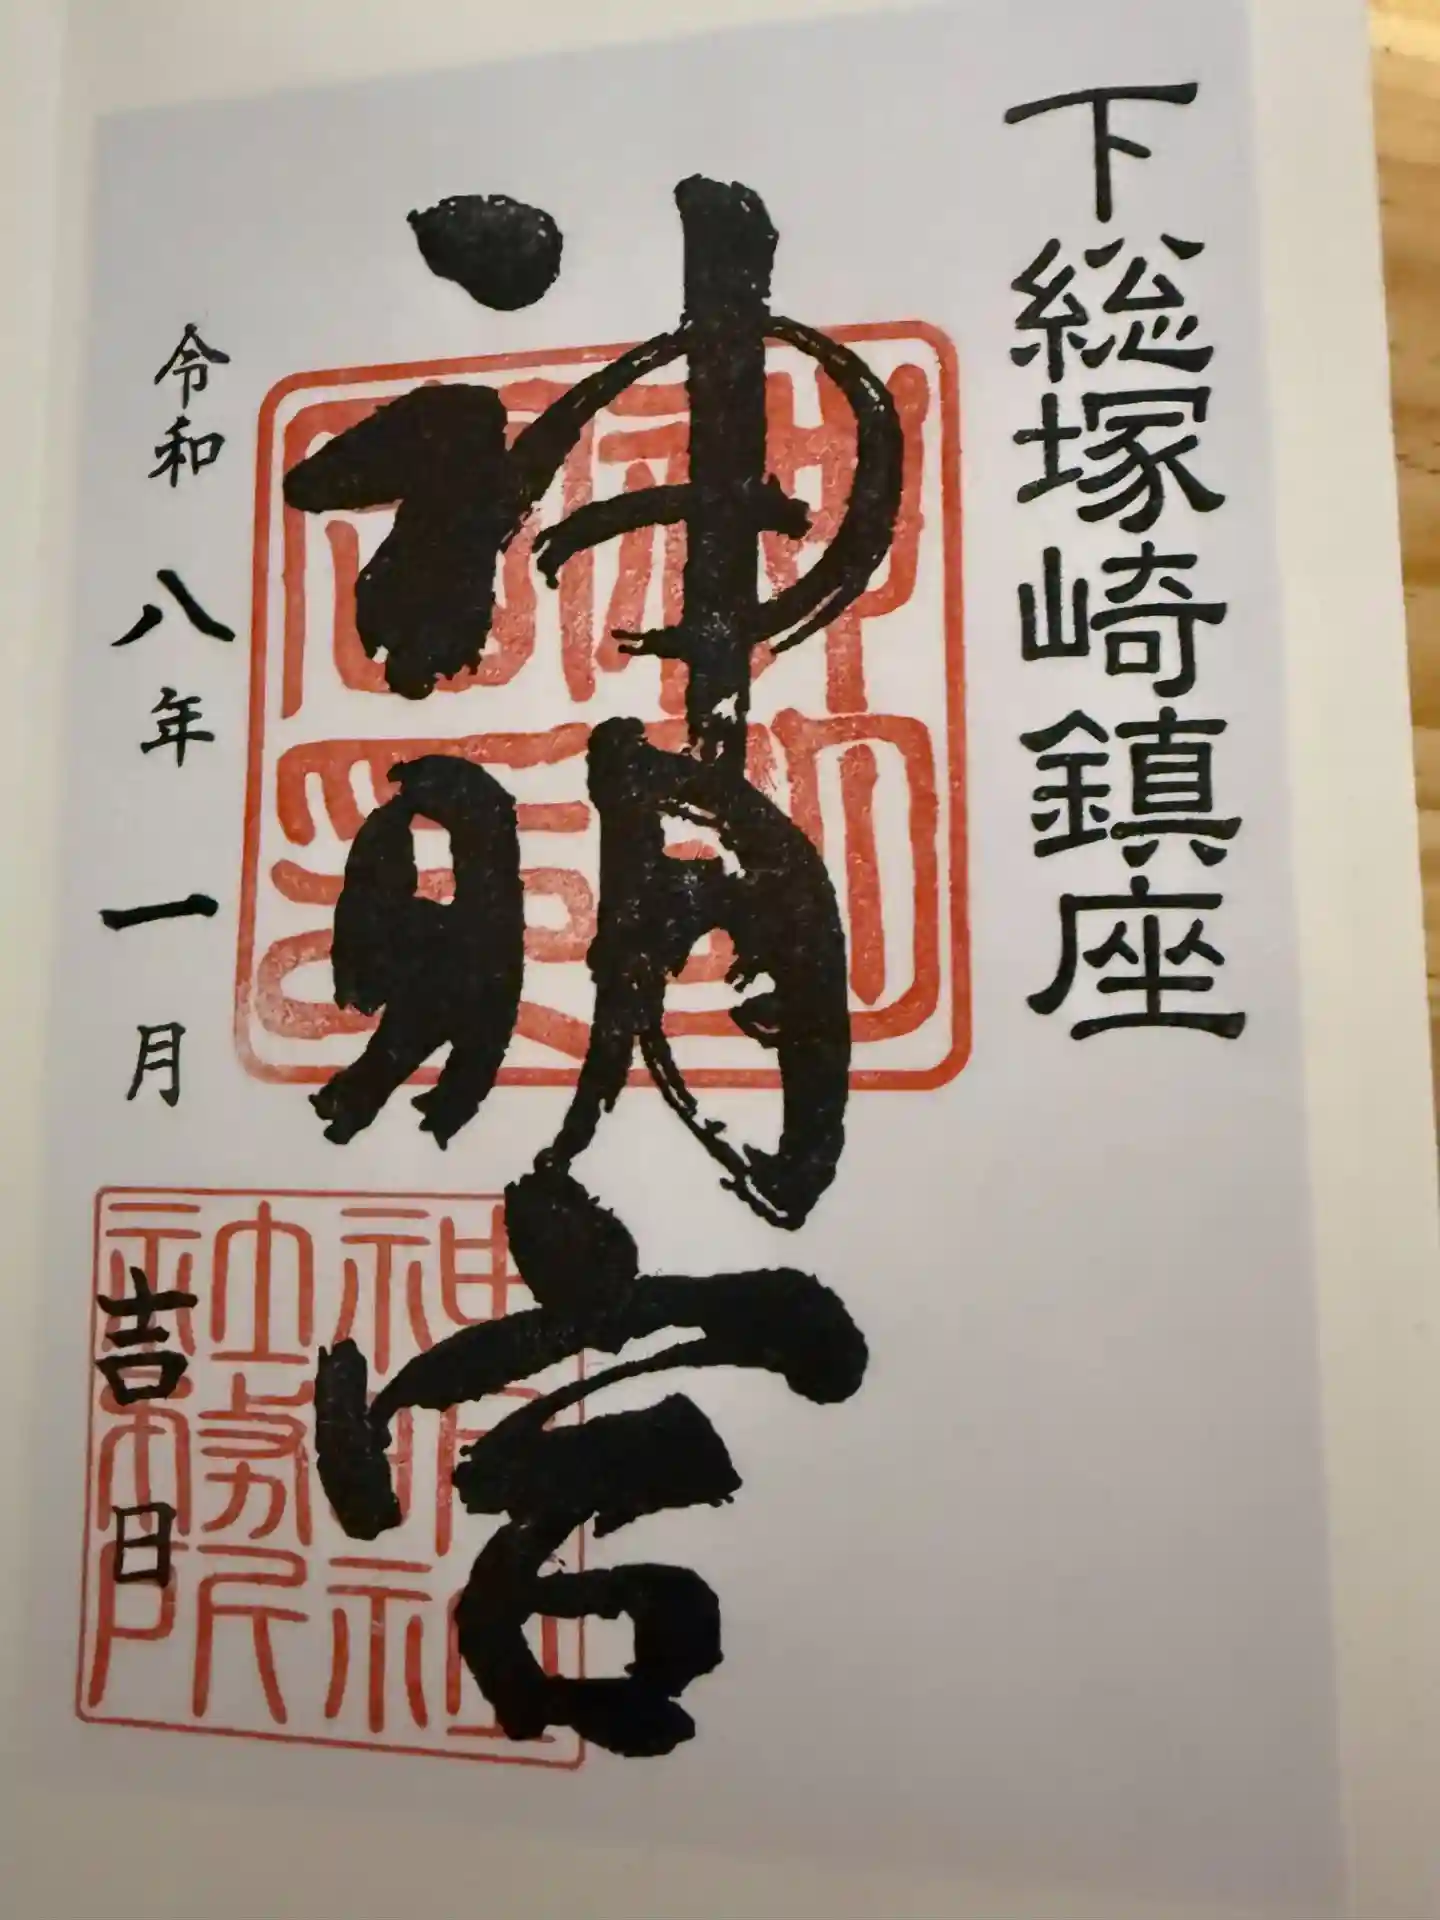 下総塚崎鎮座
神明宮
令和八年一月吉日
神明社
社務所